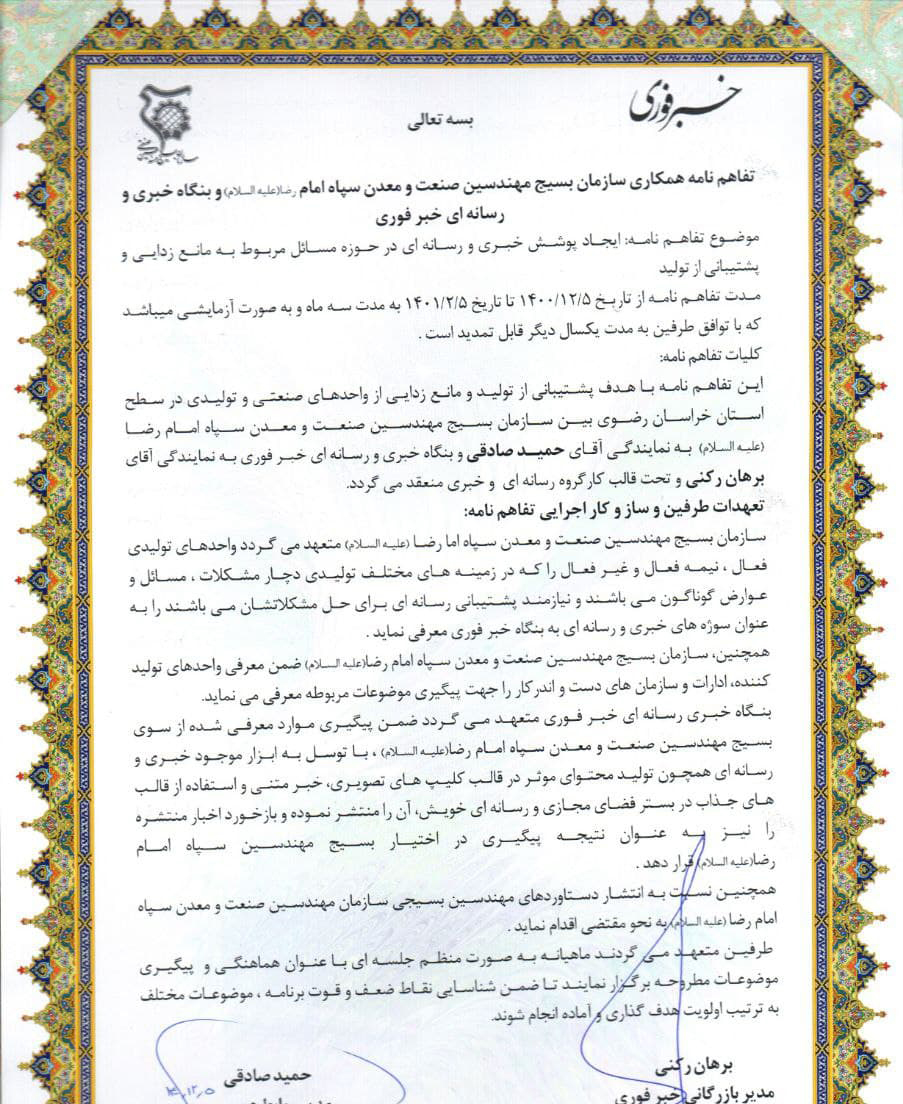 خبرفوری
بسه تعالی
تفاهم نامه همکاری سازمان بسیج مهندسین صنعت و معدن سپاه امام رضا(علیه السلام) و بنگاه خبری و
رسانه ای خبر فوری
موضوع تفاهم نامه: ایجاد پوشش خبری و رسانه ای در حوزه مسائل مربوط به مانع زدایی و
پشتیبانی از تولید
مدت تفاهم نامه از تاریخ ۱۴۰۰/۱۲/۵ تا تاریخ ۱۴۰۱/۲/۵ به مدت سه ماه و به صورت آزمایشی میباشد
که با توافق طرفین به مدت یکسال دیگر قابل تمدید است .
کلیات تفاهم نامه:
این تفاهم نامه با هدف پشتیبانی از تولید و مانع زدایی از واحدهای صنعتی و تولیدی در سطح
استان خراسان رضوی بین سازمان بسیج مهندسین صنعت و معدن سپاه امام رضا
(علیه السلام) به نمایندگی آقای حمید صادقی و بنگاه خبری و رسانه ای خبر فوری به نمایندگی آقای
برهان رکنی و تحت قالب کارگروه رسانه ای و خبری منعقد می گردد.
تعهدات طرفین و ساز و کار اجرایی تفاهم نامه:
سازمان بسیج مهندسین صنعت و معدن سپاه اما رضا (علیه السلام) متعهد می گردد واحدهای تولیدی
فعال ، نیمه فعال و غیر فعال را که در زمینه های مختلف تولیدی دچار مشکلات ، مسائل و
عوارض گوناگون می باشند و نیازمند پشتیبانی رسانه ای برای حل مشکلاتشان می باشند را به
عنوان سوژه های خبری و رسانه ای به بنگاه خبر فوری معرفی نماید .
همچنین، سازمان بسیج مهندسین صنعت و معدن سپاه امام رضا(علیه السلام) ضمن معرفی واحدهای تولید
کننده، ادارات و سازمان های دست و اندرکار را جهت پیگیری موضوعات مربوطه معرفی می نماید.
بنگاه خبری رسانه ای خبر فوری متعهد می گردد ضمن پیگیری موارد معرفی شده از سوی
بسیج مهندسین صنعت و معدن سپاه امام رضا(علیه السلام) ، با توسل به ابزار موجود خبری و
رسانه ای همچون تولید محتوای موثر در قالب کلیپ های تصویری، خبر متنی و استفاده از قالب
های جذاب در بستر فضای مجازی و رسانه ای خویش، آن را منتشر نموده و بازخورد اخبار منتشره
را نیز به عنوان نتیجه پیگیری در اختیار بسیج مهندسین سپاه امام
رضا(علیه السلام) قرار دهد .
همچنین نسبت به انتشار دستاوردهای مهندسین بسیجی سازمان مهندسین صنعت و معدن سپاه
امام رضا (علیه السلام) به نحو مقتضی اقدام نماید .
طرفین متعهد می گردند ماهیانه به صورت منظم جلسه ای با عنوان هماهنگی و پیگیری
موضوعات مطروحه برگزار نمایند تا ضمن شناسایی نقاط ضعف و قوت برنامه ، موضوعات مختلف
به ترتیب اولویت هدف گذاری و آماده انجام شوند.
برهان رکنی
مدیر بازرگانی خبر فوری
حمید صادقی